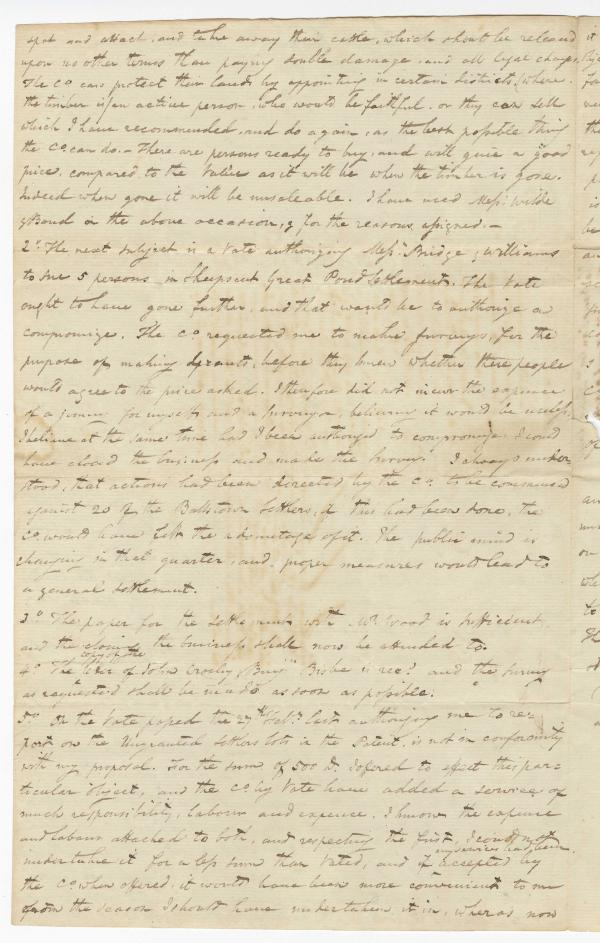 spot and attach, and take away their cattle, which should be released
upon no other terms than paying double damage, and all legal charges.
The Co. can protect their lands by appointing in certain districts, where
the timber is an active person, who would be faithful, or they can sell
which I have recommended, and do again, as the best possible thing
the Co. can do. – There are persons ready to buy, and will give a good
price, compared to the value as it will be when the timber is gone.
Indeed when gone it will be unsaleable. I have used Messrs Wilde
& Bond in the above occasion, & for the reasons assigned. –
2d. The next subject is a Vote authorizing Messrs Bridge & Williams
to sue 5 persons in Sheepscut Great Pond Settlement. The Vote
ought to have gone further, and that would be to authorize a
compromize. The Co. requested me to make surveys, for the
purpose of making, before they knew whether these people
would agree to the price asked. I therefore did not incur the expence
of a journey for myself and a surveyor, believing it would be useless.
I believe at the same time had I been authorized to compromize I could
have closed the business and made the surveys. I always under-
stood, that actions had been directed by the Co. to be commenced
against 20 of the Ballstown Settlers, if this had been done, the
Co. would have felt the advantage of it. The public mind is
changing in that quarter, and proper measures would lead to
a general settlement.
3d. The paper for the settlement with Mr. Wood is sufficient,
and the closing the business shall now be attended to.
copy of the
4th. The of John Crosby, Benjn. is recd. and the survey
as requested shall be made as soon as possible.
5th. In the Vote passed the 27th last authorizing me to re-
port on the Ungranted Settlers lots in the Patent, is not in conformity
with my proposal. For the sum of 500 D. I offered to effect this par-
ticular object, and the Co. by Vote have added a service of
much responsibility, labour and expence. I know the expence
and labour attached to both, and respecting the first, I could not
undertake it for a less sum than Voted, and if my services had been accepted by
the Co. when offered, it would have been more convenient to me
from the season I should have undertaken it in, whereas now